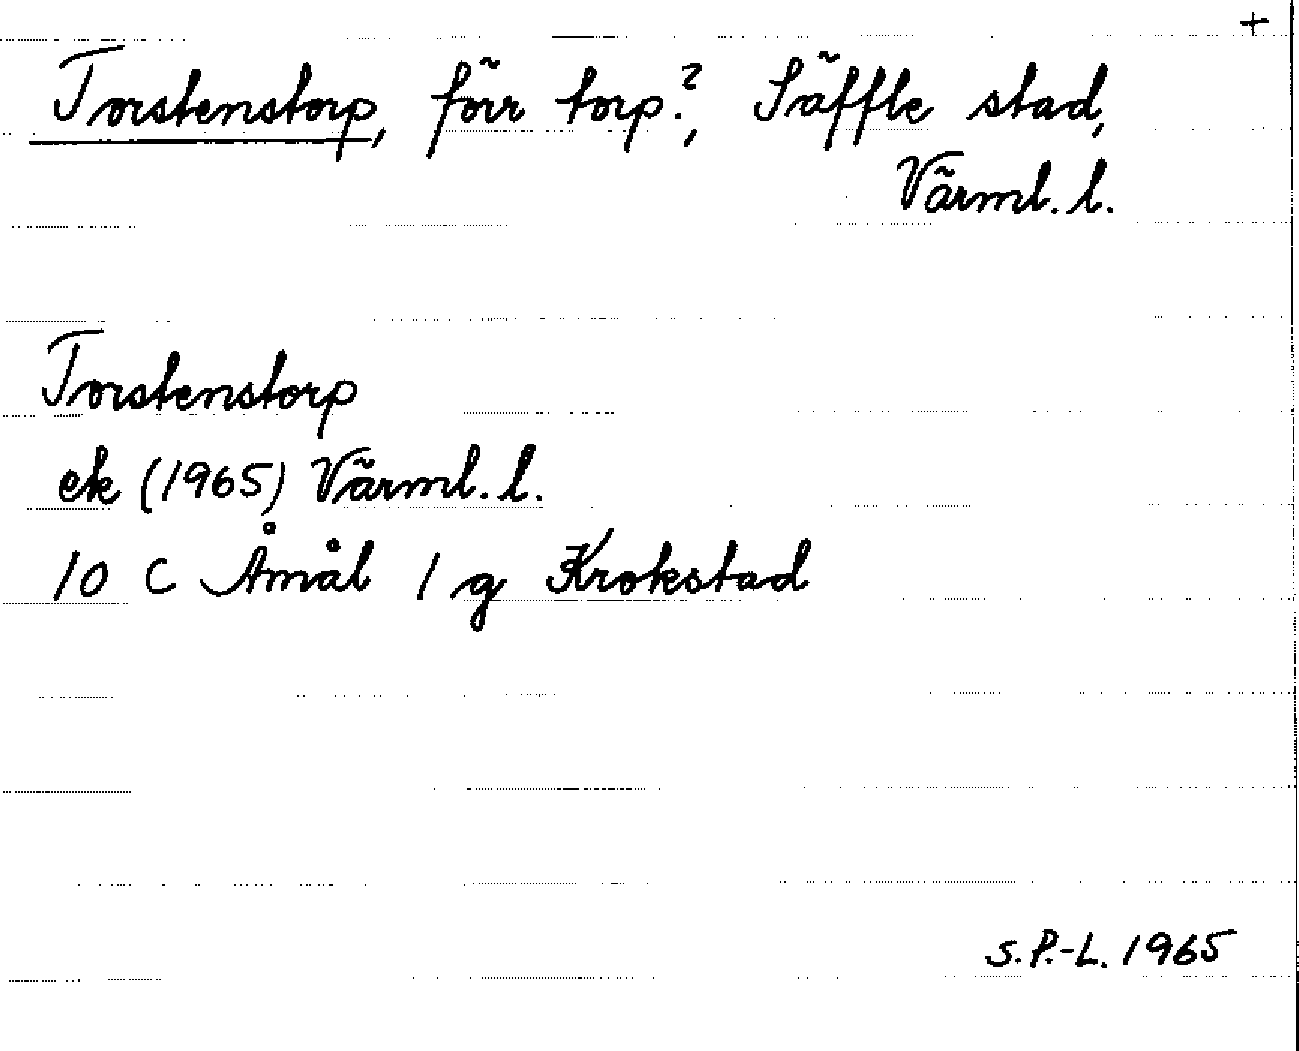 +
Torstenstorp, förr torp?, Säffle stad,
Värml. l.
Torstenstorp
ek (1965) Värml. l.
10 C Åmål 1 g Krokstad
S. P.-L. 1965